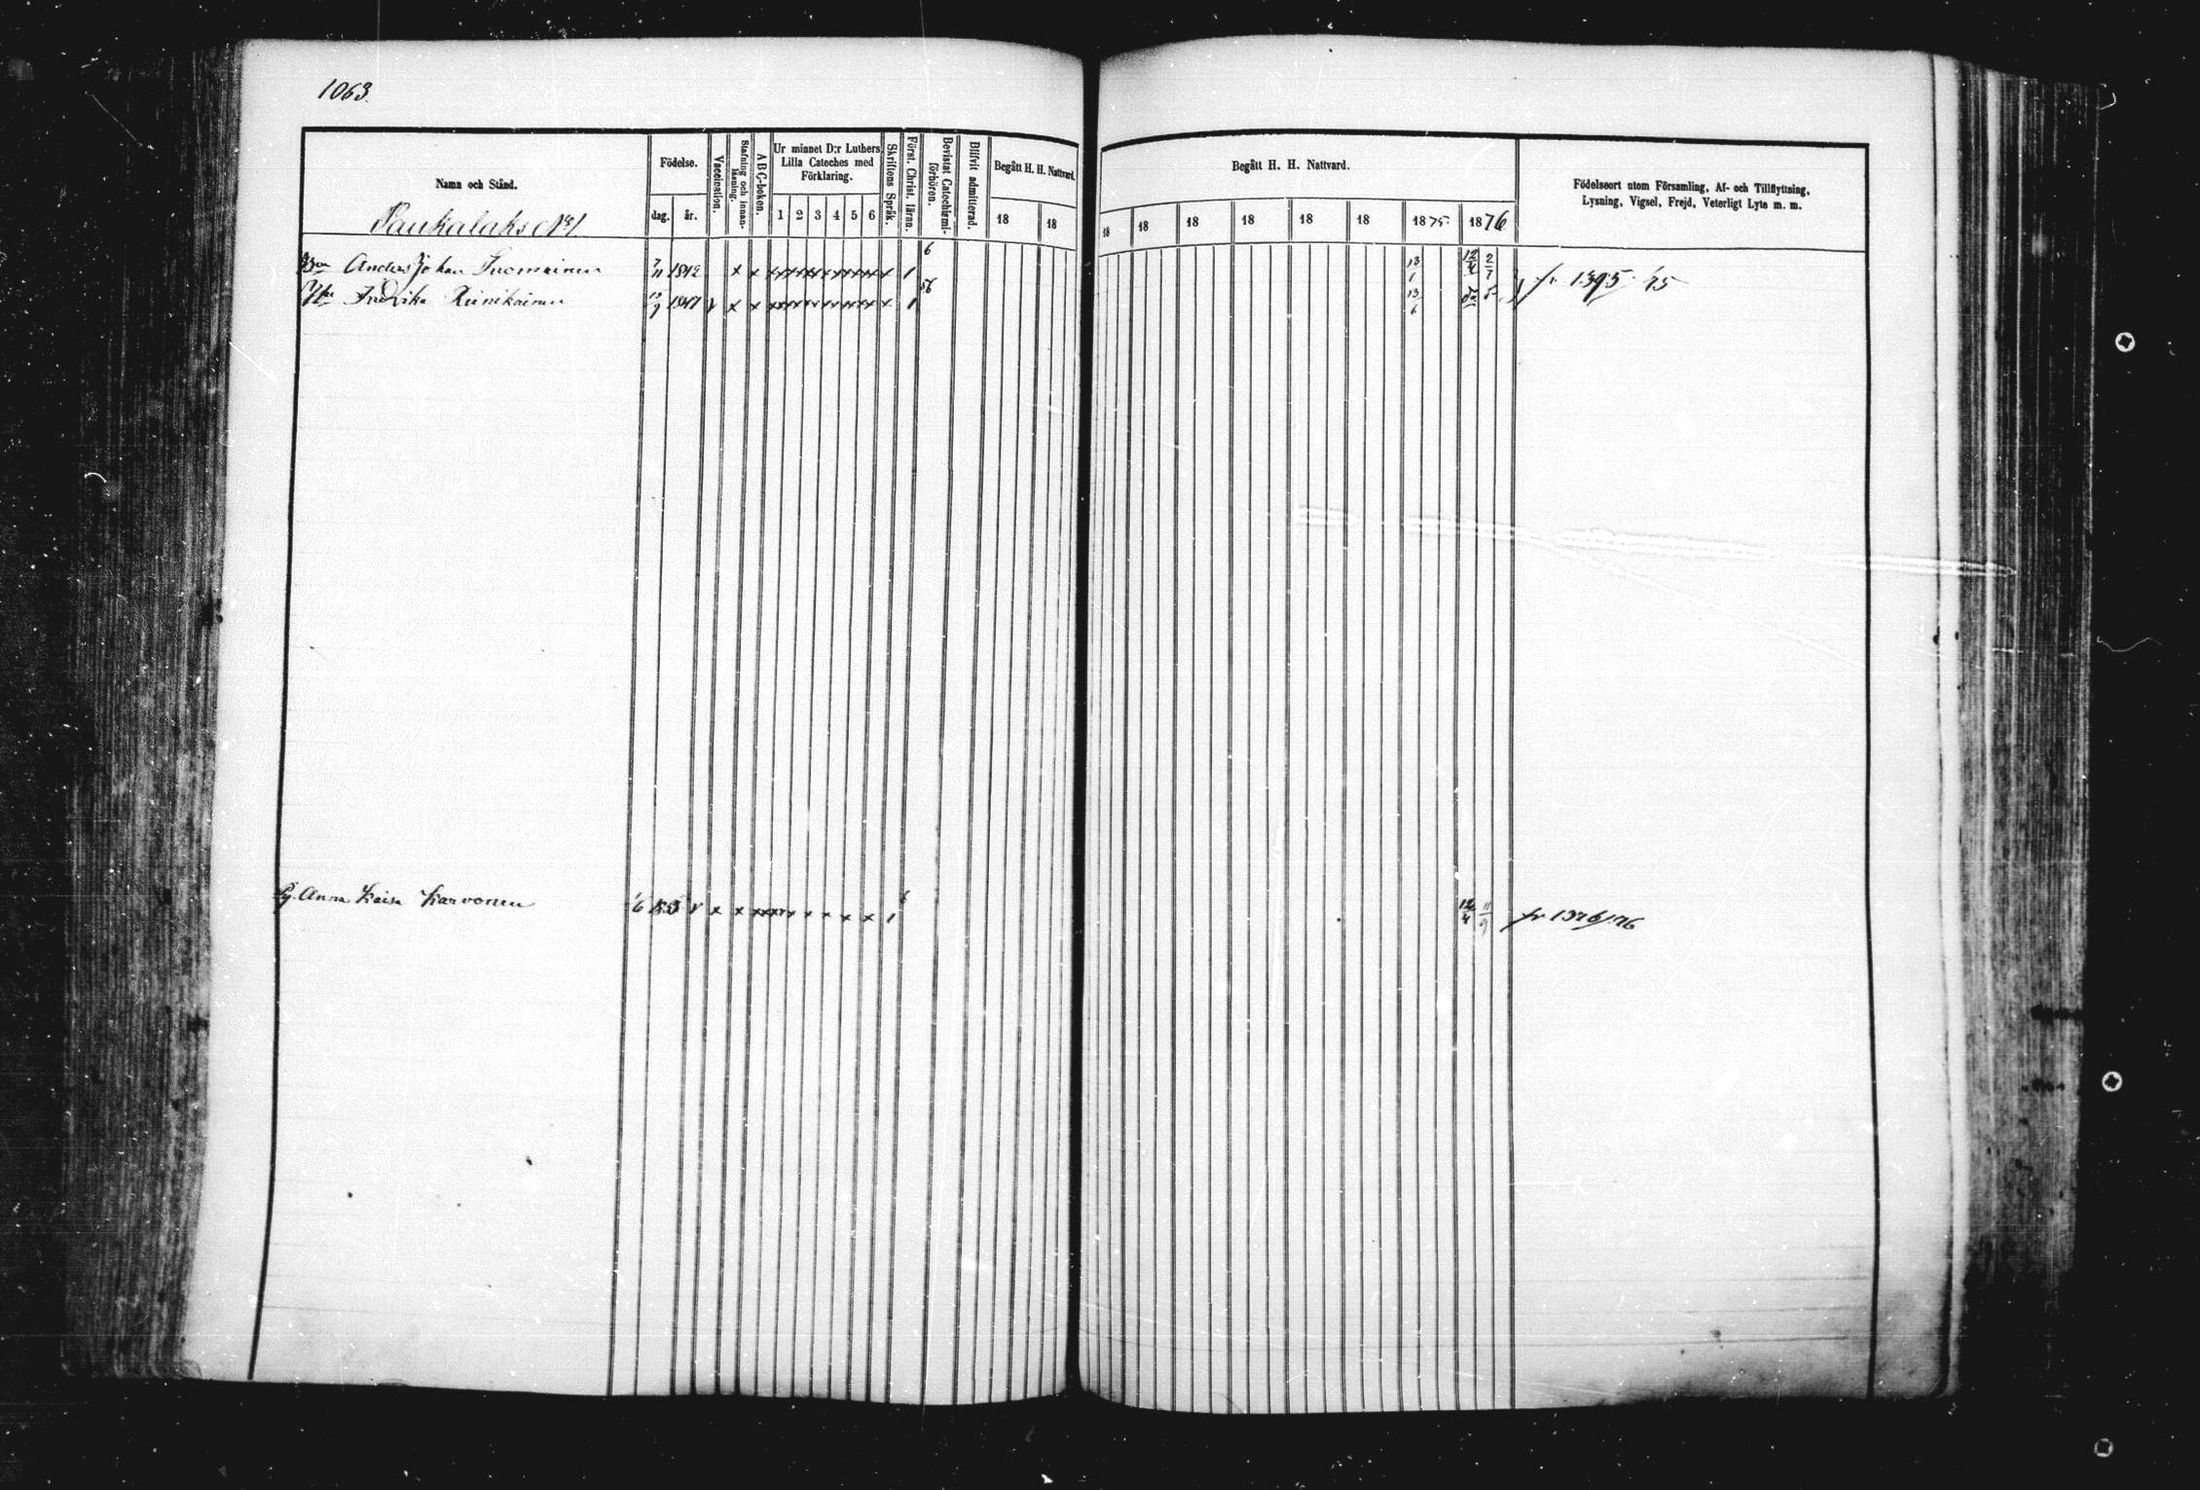 1063.
Namn och Stånd.
Födelse.
dag. år.
Vaccination.
Stafning och innan-läsning.
A B C-boken.
Ur minnet D:r Luthers Lilla Cateches med Förklaring.
1 2 3 4 5 6
Skriftens Språk.
Först. Christ. lärnn.
Bevistat Catechismi-förhören.
Blifvit admitterad.
Begått H. H. Nattvard.
18 18
Begått H. H. Nattvard.
18 18 18 18 18 18 1875 1876
Födelseort utom Församling, Af- och Tillflyttning,
Lysning, Vigsel, Frejd, Veterligt Lyte m. m.
Anders Johan Tuomainen 7/11 1842 x x x 1 6 13/1 12/4 2/7 fr. 1395 75
Fredrika Reinikainen 1847 v x x x 1 56 13/6
Anna Kaisa Karvonen v x x x x x x x 1 6 12/4 11/9 fr 1376/76